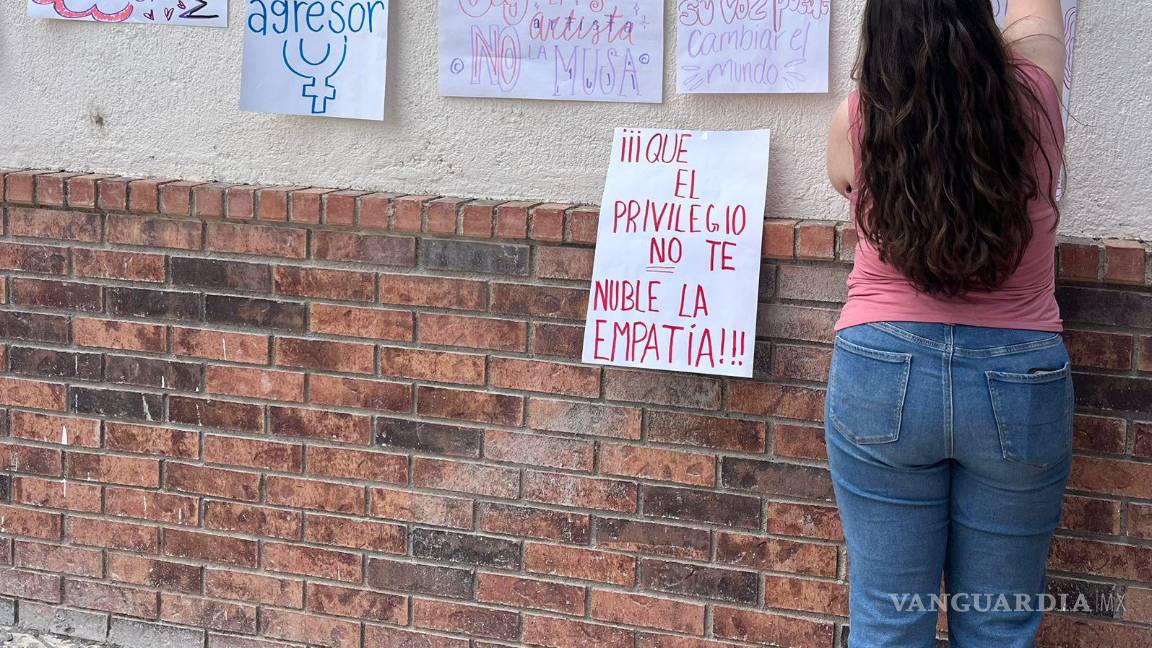 agresor
artista
NO LA MUSA
su voz puede
cambiar el
mundo
¡¡¡QUE
EL
PRIVILEGIO
NO TE
NUBLE LA
EMPATÍA!!!
VANGUARDIA|MX